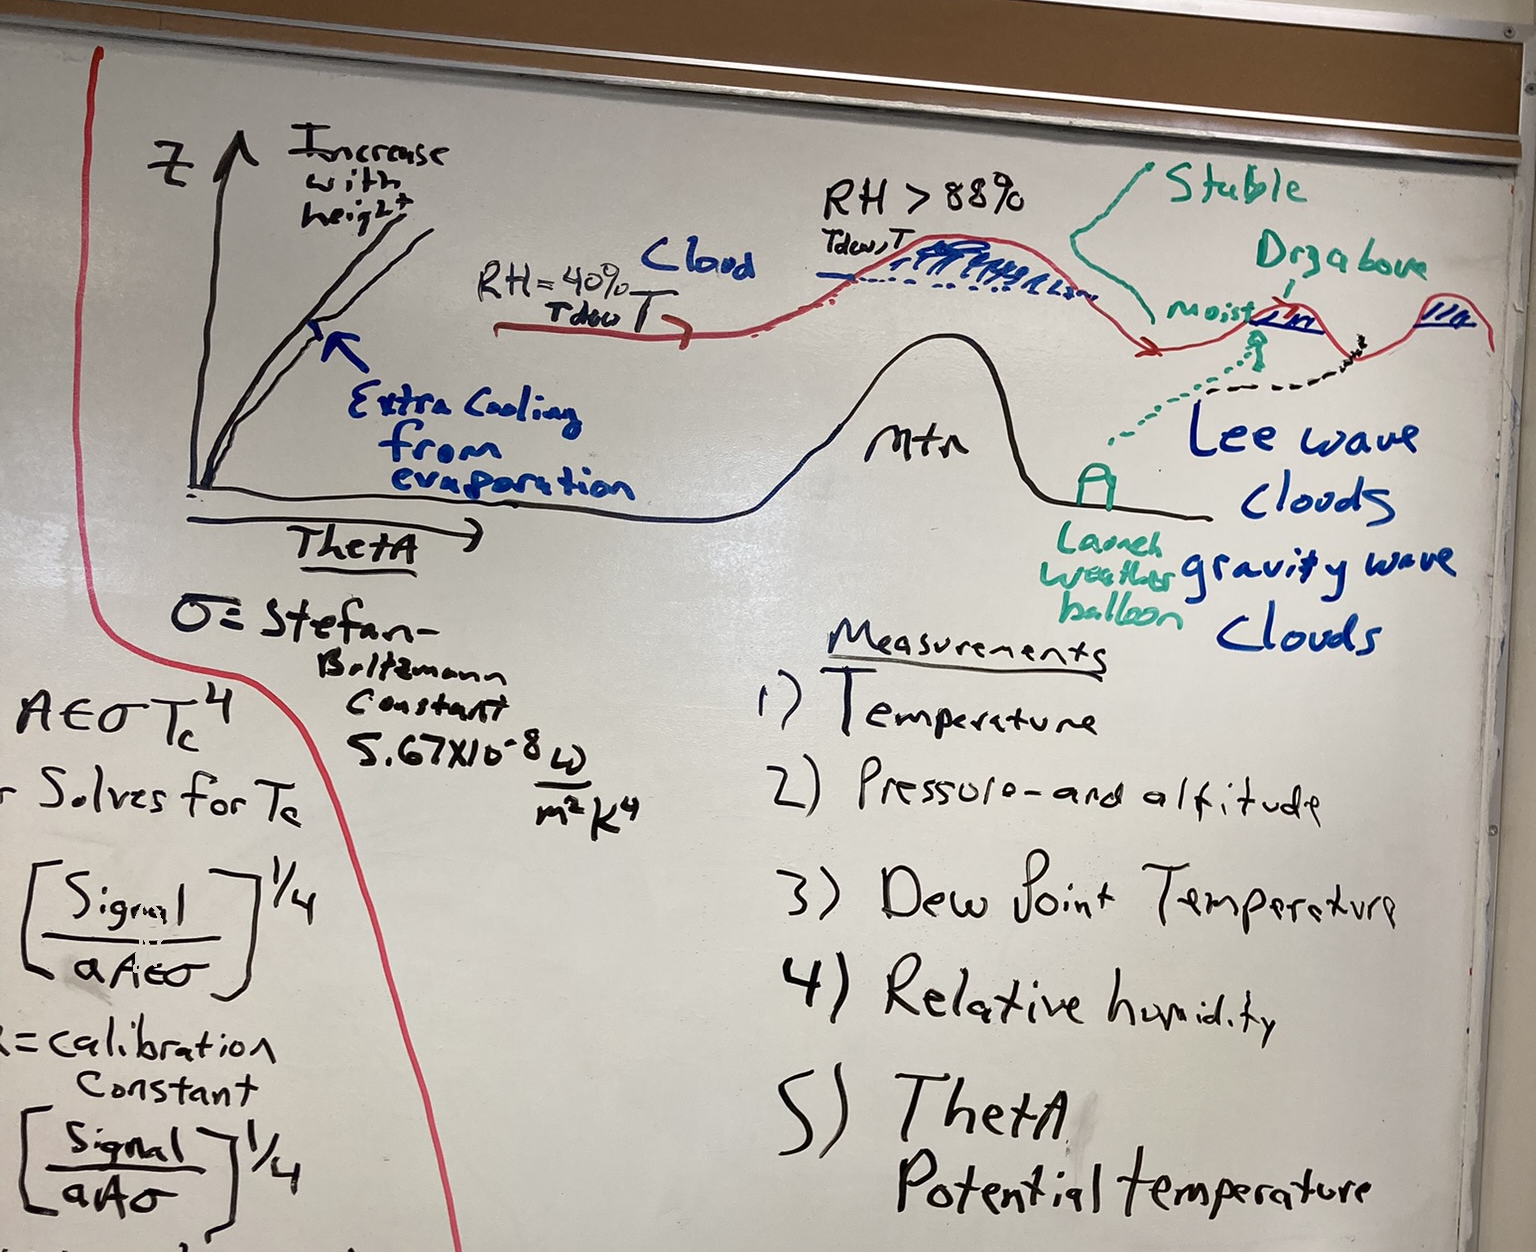 Z
Increase
with
height
Extra Cooling
from
evaporation
ThetA
RH = 40%
Tdew T
Cloud
RH > 88%
Tdew, T
Mtn
Stable
Dry above
Moist
Launch
weather
balloon
Lee wave
Clouds
gravity wave
Clouds
σ = Stefan-
Boltzmann
Constant
5.67X10⁻⁸ W
m² K⁴
A ϵ σ Tc⁴
Solves for Tc
[Signal
aAϵσ]^1/4
= calibration
Constant
[Signal
aAσ]^1/4
Measurements
1) Temperature
2) Pressure - and altitude
3) Dew Point Temperature
4) Relative humidity
5) ThetA
Potential temperature